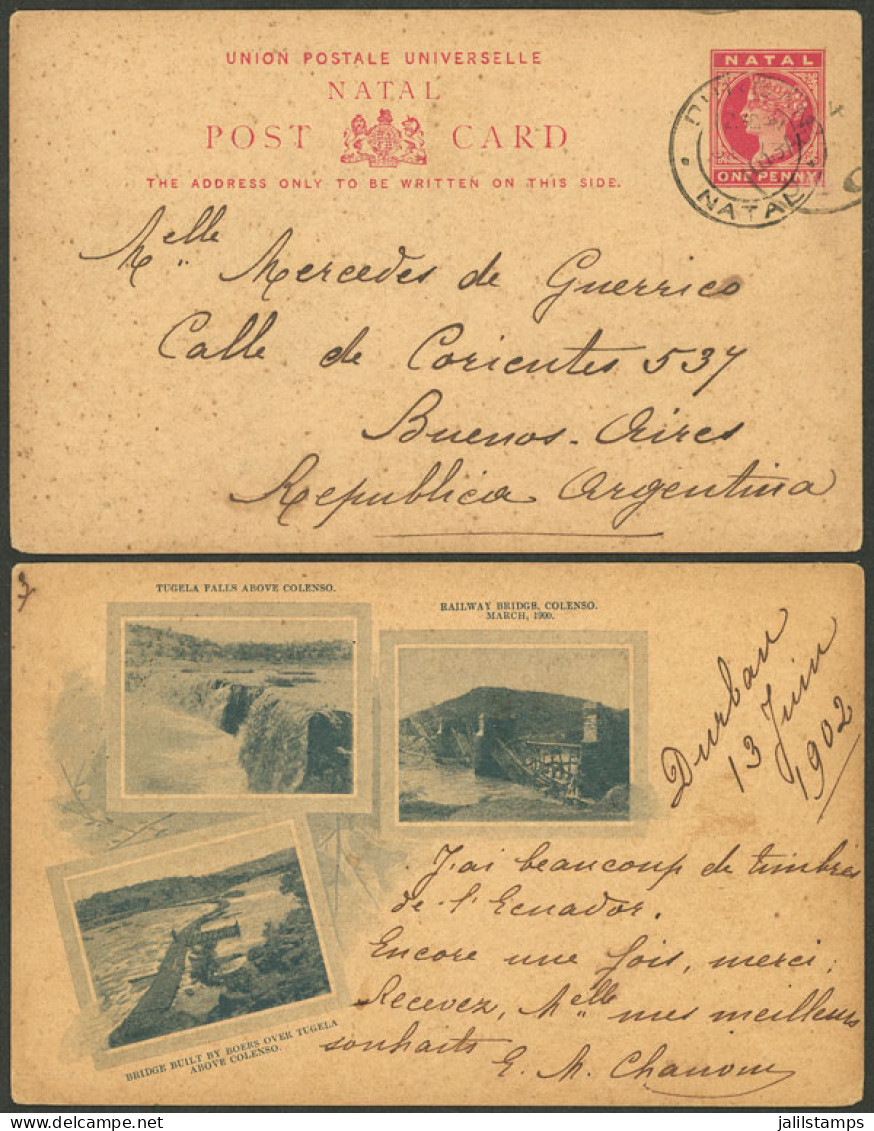 UNION POSTALE UNIVERSELLE
NATAL
POST CARD
THE ADDRESS ONLY TO BE WRITTEN ON THIS SIDE.
NATAL
ONE PENNY
NATAL
Melle Mercedes de Guerrico
Calle de Corientes 537
Buenos-Aires
Republica Argentina
3
TUGELA FALLS ABOVE COLENSO.
RAILWAY BRIDGE, COLENSO.
MARCH, 1900.
BRIDGE BUILT BY BOERS OVER TUGELA
ABOVE COLENSO.
Durban
13 Juin
1902
J'ai beaucoup de timbres
de l'Ecuador.
Encore une fois, merci;
Recevez, Melle mes meilleurs
souhaits
E. M.
jalilstamps